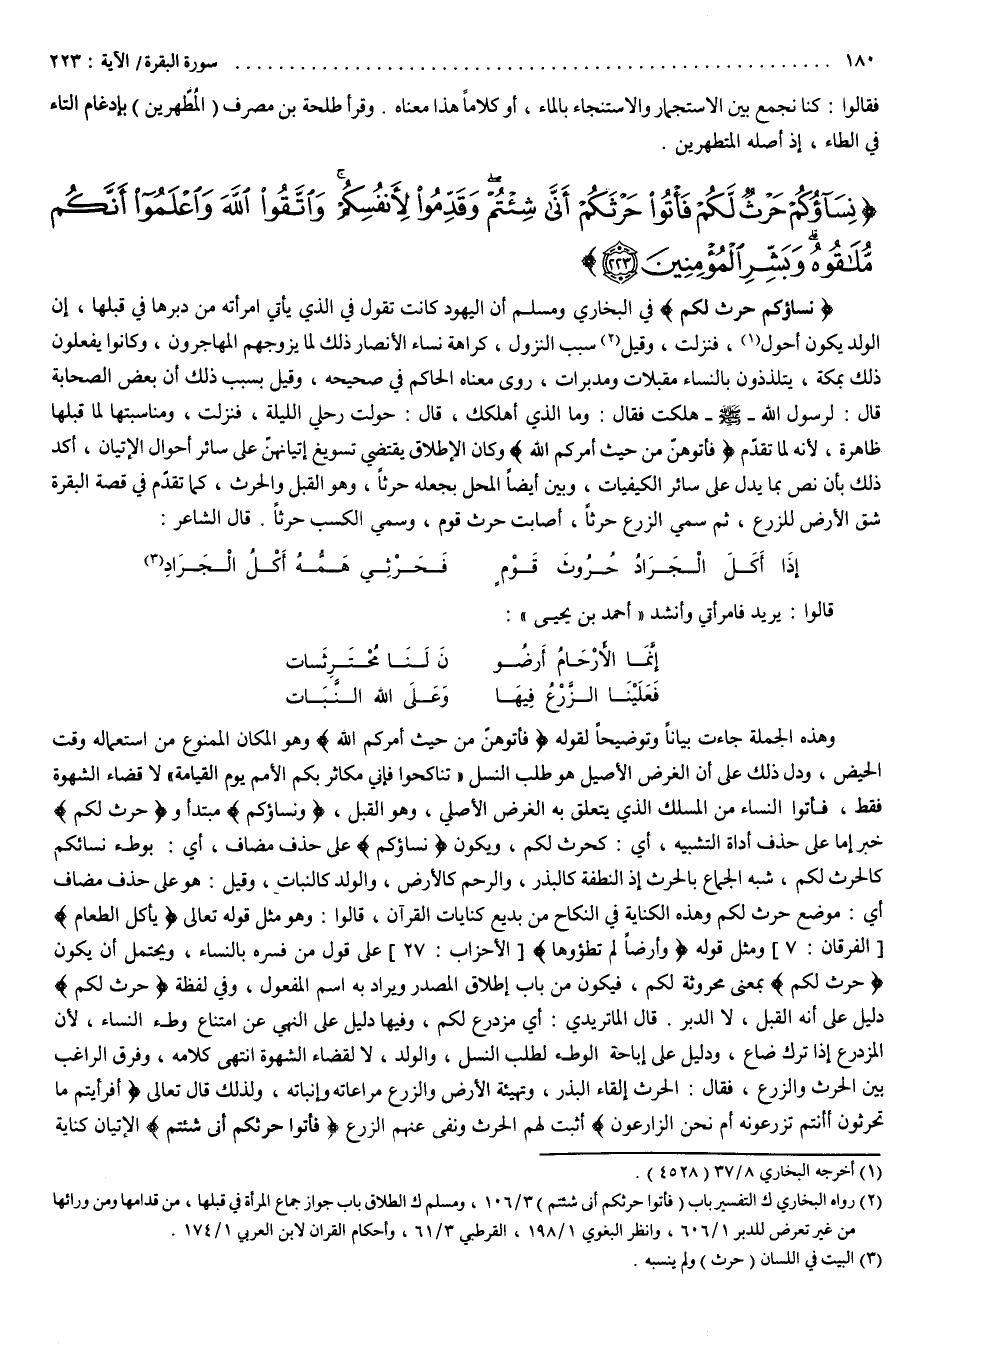 ١٨٠ ........................................................ سورة البقرة/ الآية : ٢٢٣
فقالوا : كنا نجمع بين الاستجمار والاستنجاء بالماء ، أو كلاماً هذا معناه . وقرأ طلحة بن مصرف ( المُطَّهرين ) بإدغام التاء
في الطاء ، إذ أصله المتطهرين .
﴿ نِسَآؤُكُمْ حَرْثٌ لَّكُمْ فَأْتُوا۟ حَرْثَكُمْ أَنَّىٰ شِئْتُمْ ۖ وَقَدِّمُوا۟ لِأَنفُسِكُمْ ۚ وَٱتَّقُوا۟ ٱللَّهَ وَٱعْلَمُوٓا۟ أَنَّكُم
مُّلَـٰقُوهُ ۗ وَبَشِّرِ ٱلْمُؤْمِنِينَ ٢٢٣ ﴾
﴿ نساؤكم حرث لكم ﴾ في البخاري ومسلم أن اليهود كانت تقول في الذي يأتي امرأته من دبرها في قبلها ، إن
الولد يكون أحول(١) ، فنزلت ، وقيل(٢) سبب النزول ، كراهة نساء الأنصار ذلك لما يزوجهم المهاجرون ، وكانوا يفعلون
ذلك بمكة ، يتلذذون بالنساء مقبلات ومدبرات ، روى معناه الحاكم في صحيحه ، وقيل بسبب ذلك أن بعض الصحابة
قال : لرسول الله - ﷺ - هلكت فقال : وما الذي أهلكك ، قال : حولت رحلي الليلة ، فنزلت ، ومناسبتها لما قبلها
ظاهرة ، لأنه لما تقدّم ﴿ فأتوهنّ من حيث أمركم الله ﴾ وكان الإطلاق يقتضي تسويغ إتيانهنّ على سائر أحوال الإتيان ، أكد
ذلك بأن نص بما يدل على سائر الكيفيات ، وبين أيضاً المحل بجعله حرثاً ، وهو القبل والحرث ، كما تقدّم في قصة البقرة
شق الأرض للزرع ، ثم سمي الزرع حرثاً ، أصابت حرث قوم ، وسمي الكسب حرثاً . قال الشاعر :
إذَا أَكَلَ الْجَرَادُ حُرُوثَ قَوْمٍ فَحَرْثِي هَمُّهُ أَكْلُ الْجَرَادِ(٣)
قالوا : يريد فامرأتي وأنشد « أحمد بن يحيى » :
إنَّمَا الأَرْحَامُ أَرضُو نَ لَنَا مُحْتَرِثَات
فَعَلَيْنَا الزَّرْعُ فِيهَا وَعَلَى الله النَّبَات
وهذه الجملة جاءت بياناً وتوضيحاً لقوله ﴿ فأتوهنّ من حيث أمركم الله ﴾ وهو المكان الممنوع من استعماله وقت
الحيض ، ودل ذلك على أن الغرض الأصيل هو طلب النسل « تناكحوا فإني مكاثر بكم الأمم يوم القيامة» لا قضاء الشهوة
فقط ، فأتوا النساء من المسلك الذي يتعلق به الغرض الأصلي ، وهو القبل ، ﴿ ونساؤكم ﴾ مبتدأ و ﴿ حرث لكم ﴾
خبر إما على حذف أداة التشبيه ، أي : كحرث لكم ، ويكون ﴿ نساؤكم ﴾ على حذف مضاف ، أي : بوطء نسائكم
كالحرث لكم ، شبه الجماع بالحرث إذ النطفة كالبذر ، والرحم كالأرض ، والولد كالنبات ، وقيل : هو على حذف مضاف
أي : موضع حرث لكم وهذه الكناية في النكاح من بديع كنايات القرآن ، قالوا : وهو مثل قوله تعالى ﴿ يأكل الطعام ﴾
[ الفرقان : ٧ ] ومثل قوله ﴿ وأرضاً لم تطؤوها ﴾ [ الأحزاب : ٢٧ ] على قول من فسره بالنساء ، ويحتمل أن يكون
﴿ حرث لكم ﴾ بمعنى محروثة لكم ، فيكون من باب إطلاق المصدر ويراد به اسم المفعول ، وفي لفظة ﴿ حرث لكم ﴾
دليل على أنه القبل ، لا الدبر . قال الماتريدي : أي مزدرع لكم ، وفيها دليل على النهي عن امتناع وطء النساء ، لأن
المزدرع إذا ترك ضاع ، ودليل على إباحة الوطء لطلب النسل ، والولد ، لا لقضاء الشهوة انتهى كلامه ، وفرق الراغب
بين الحرث والزرع ، فقال : الحرث إلقاء البذر ، وتهيئة الأرض والزرع مراعاته وإنباته ، ولذلك قال تعالى ﴿ أفرأيتم ما
تحرثون أأنتم تزرعونه أم نحن الزارعون ﴾ أثبت لهم الحرث ونفى عنهم الزرع ﴿ فأتوا حرثكم أنى شئتم ﴾ الإتيان كناية
(١) أخرجه البخاري ٣٧/٨ ( ٤٥٢٨ ) .
(٢) رواه البخاري ك التفسير باب ( فأتوا حرثكم أنى شئتم ) ١٠٦/٣ ، ومسلم ك الطلاق باب جواز جماع المرأة في قبلها ، من قدامها ومن ورائها
من غير تعرض للدبر ٦٠٦/١ ، وانظر البغوي ١٩٨/١ ، القرطبي ٦١/٣ ، وأحكام القران لابن العربي ١٧٤/١ .
(٣) البيت في اللسان ( حرث ) ولم ينسبه .